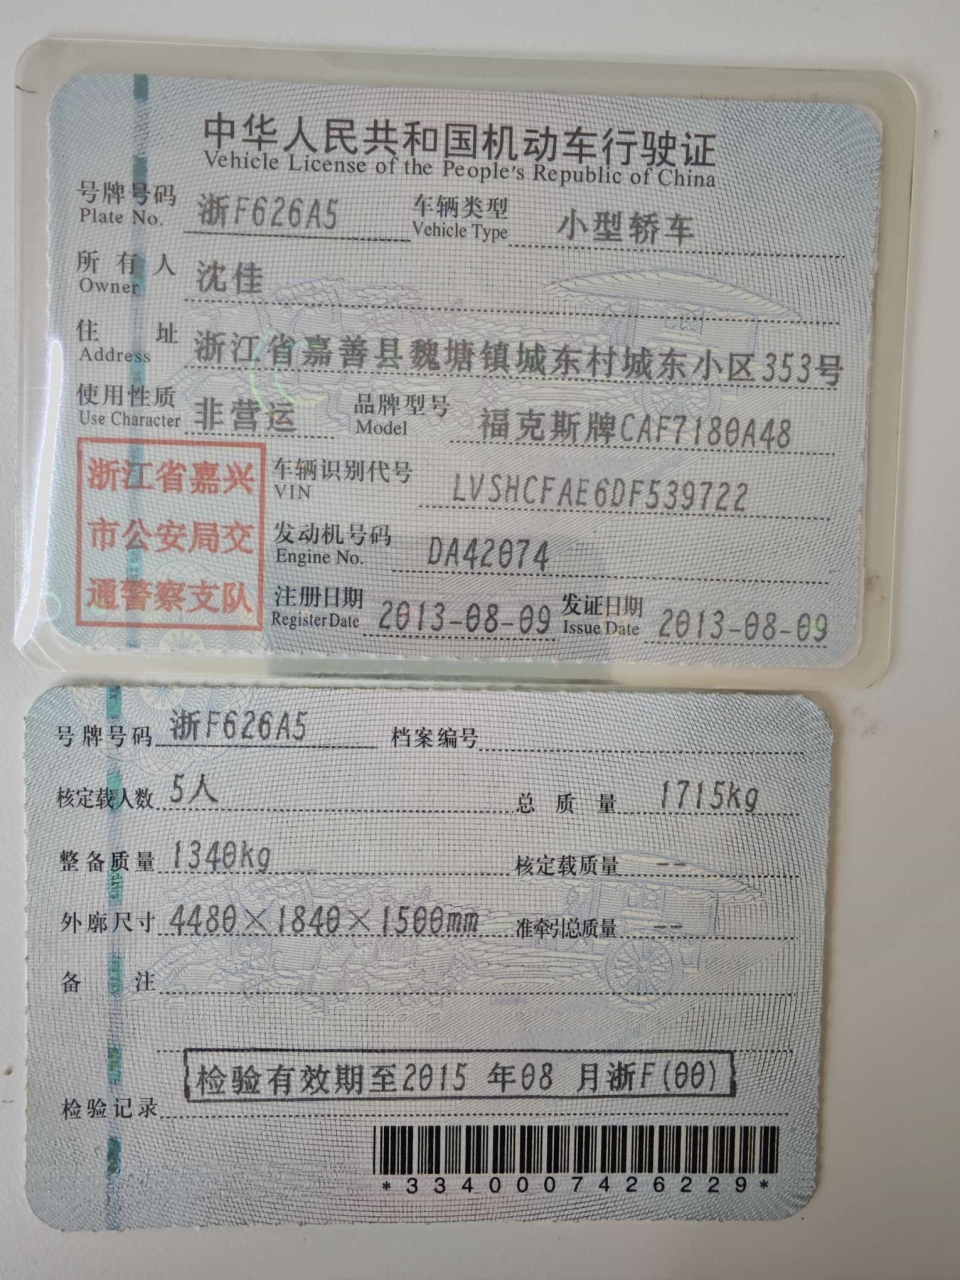 中华人民共和国机动车行驶证
Vehicle License of the People's Republic of China
号牌号码 浙F626A5 车辆类型 小型轿车
Plate No. Vehicle Type
所有人 沈佳
Owner
住址 浙江省嘉善县魏塘镇城东村城东小区353号
Address
使用性质 非营运 品牌型号 福克斯牌CAF7180A48
Use Character Model
浙江省嘉兴
市公安局交
通警察支队
车辆识别代号 LVSHCFAE6DF539722
VIN
发动机号码 DA42074
Engine No.
注册日期 2013-08-09 发证日期 2013-08-09
Register Date Issue Date
号牌号码 浙F626A5 档案编号
核定载人数 5人 总质量 1715kg
整备质量 1340kg 核定载质量 --
外廓尺寸 4480×1840×1500mm 准牵引总质量 --
备注
检验有效期至2015 年08 月浙F(00)
检验记录
*3340007426229*